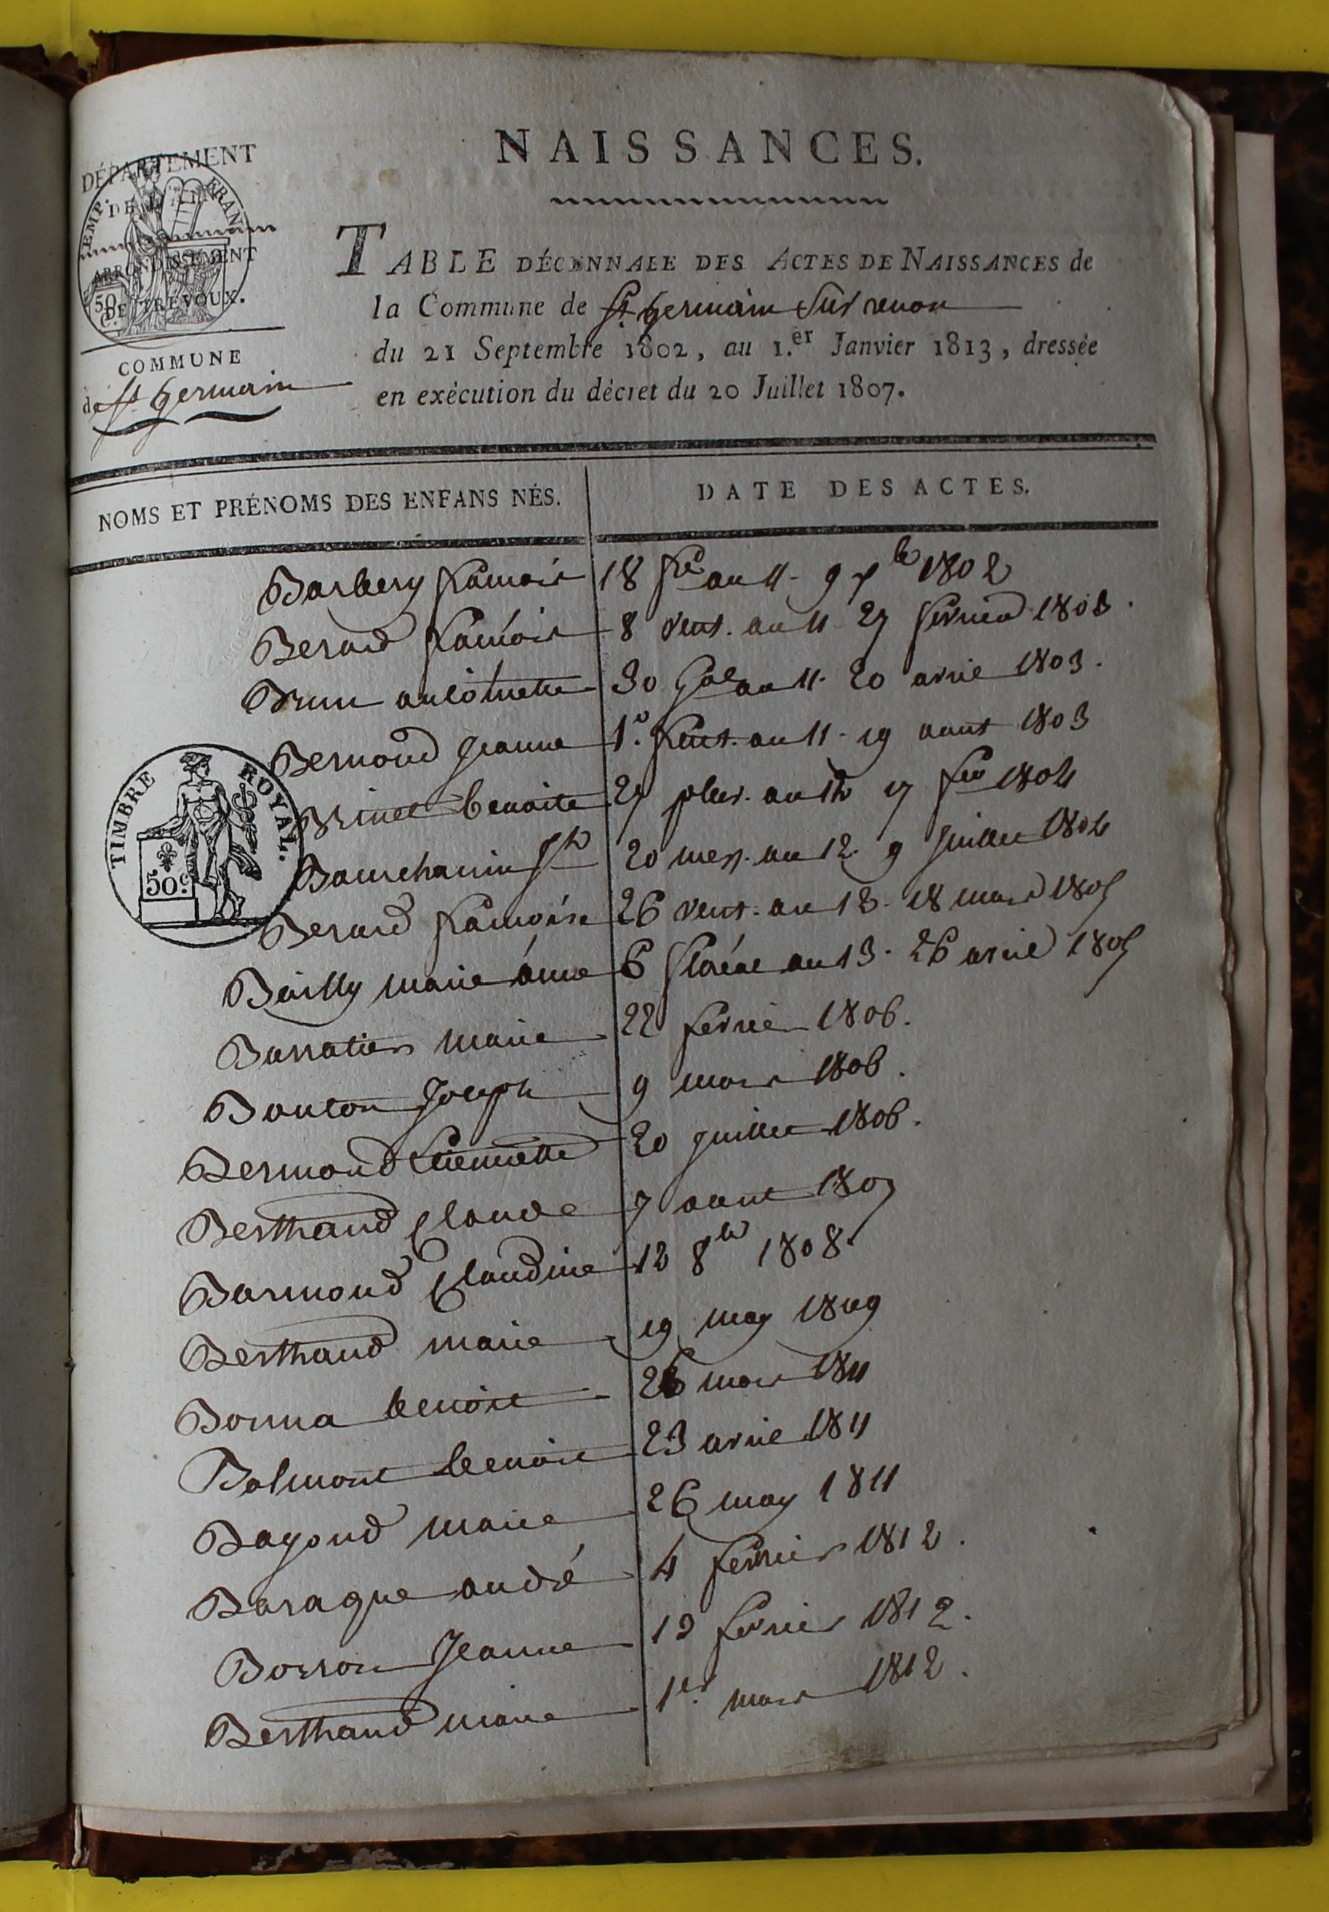 NAISSANCES.
DÉPARTEMENT
DE L'AIN
EMP. FRAN
ARRONDISSEMENT
50 C.
DE TRÉVOUX.
COMMUNE
de St germain
TABLE DÉCENNALE DES ACTES DE NAISSANCES de
la Commune de St germain sur renon
du 21 Septembre 1802, au 1.er Janvier 1813, dressée
en exécution du décret du 20 Juillet 1807.
NOMS ET PRÉNOMS DES ENFANS NÉS. DATE DES ACTES.
Barbery francois 18 fre an 11 - 9 xbre 1802
Berard francois 8 vent. an 11 27 fevrier 1803.
Brun antoinette 30 gal an 11. 20 avril 1803.
Bermond jeanne 1er fruct. an 11 - 19 aout 1803
TIMBRE ROYAL.
50 c.
benoite 27 pluv. an 12 17 fer 1804
jh 20 mess. an 12 9 juillet 1804
Berard francoise 26 vent. an 13. 18 mars 1805
Bailly marie anne 6 floréal an 13. 26 avril 1805
Barratier marie 22 fevrier 1806.
Bouton joseph 9 mars 1806.
Bermond etiennette 20 juillet 1806.
Berthaud claude 7 aout 1807
Barmond claudine 12 8bre 1808
Berthaud marie 19 may 1809
Bonna benoit 26 mars 1811
Balmont benoit 23 avril 1811
Bayoud marie 26 may 1811
Baraque andré 4 fevrier 1812.
Borron jeanne 19 fevrier 1812.
Berthaud marie 1er mars 1812.